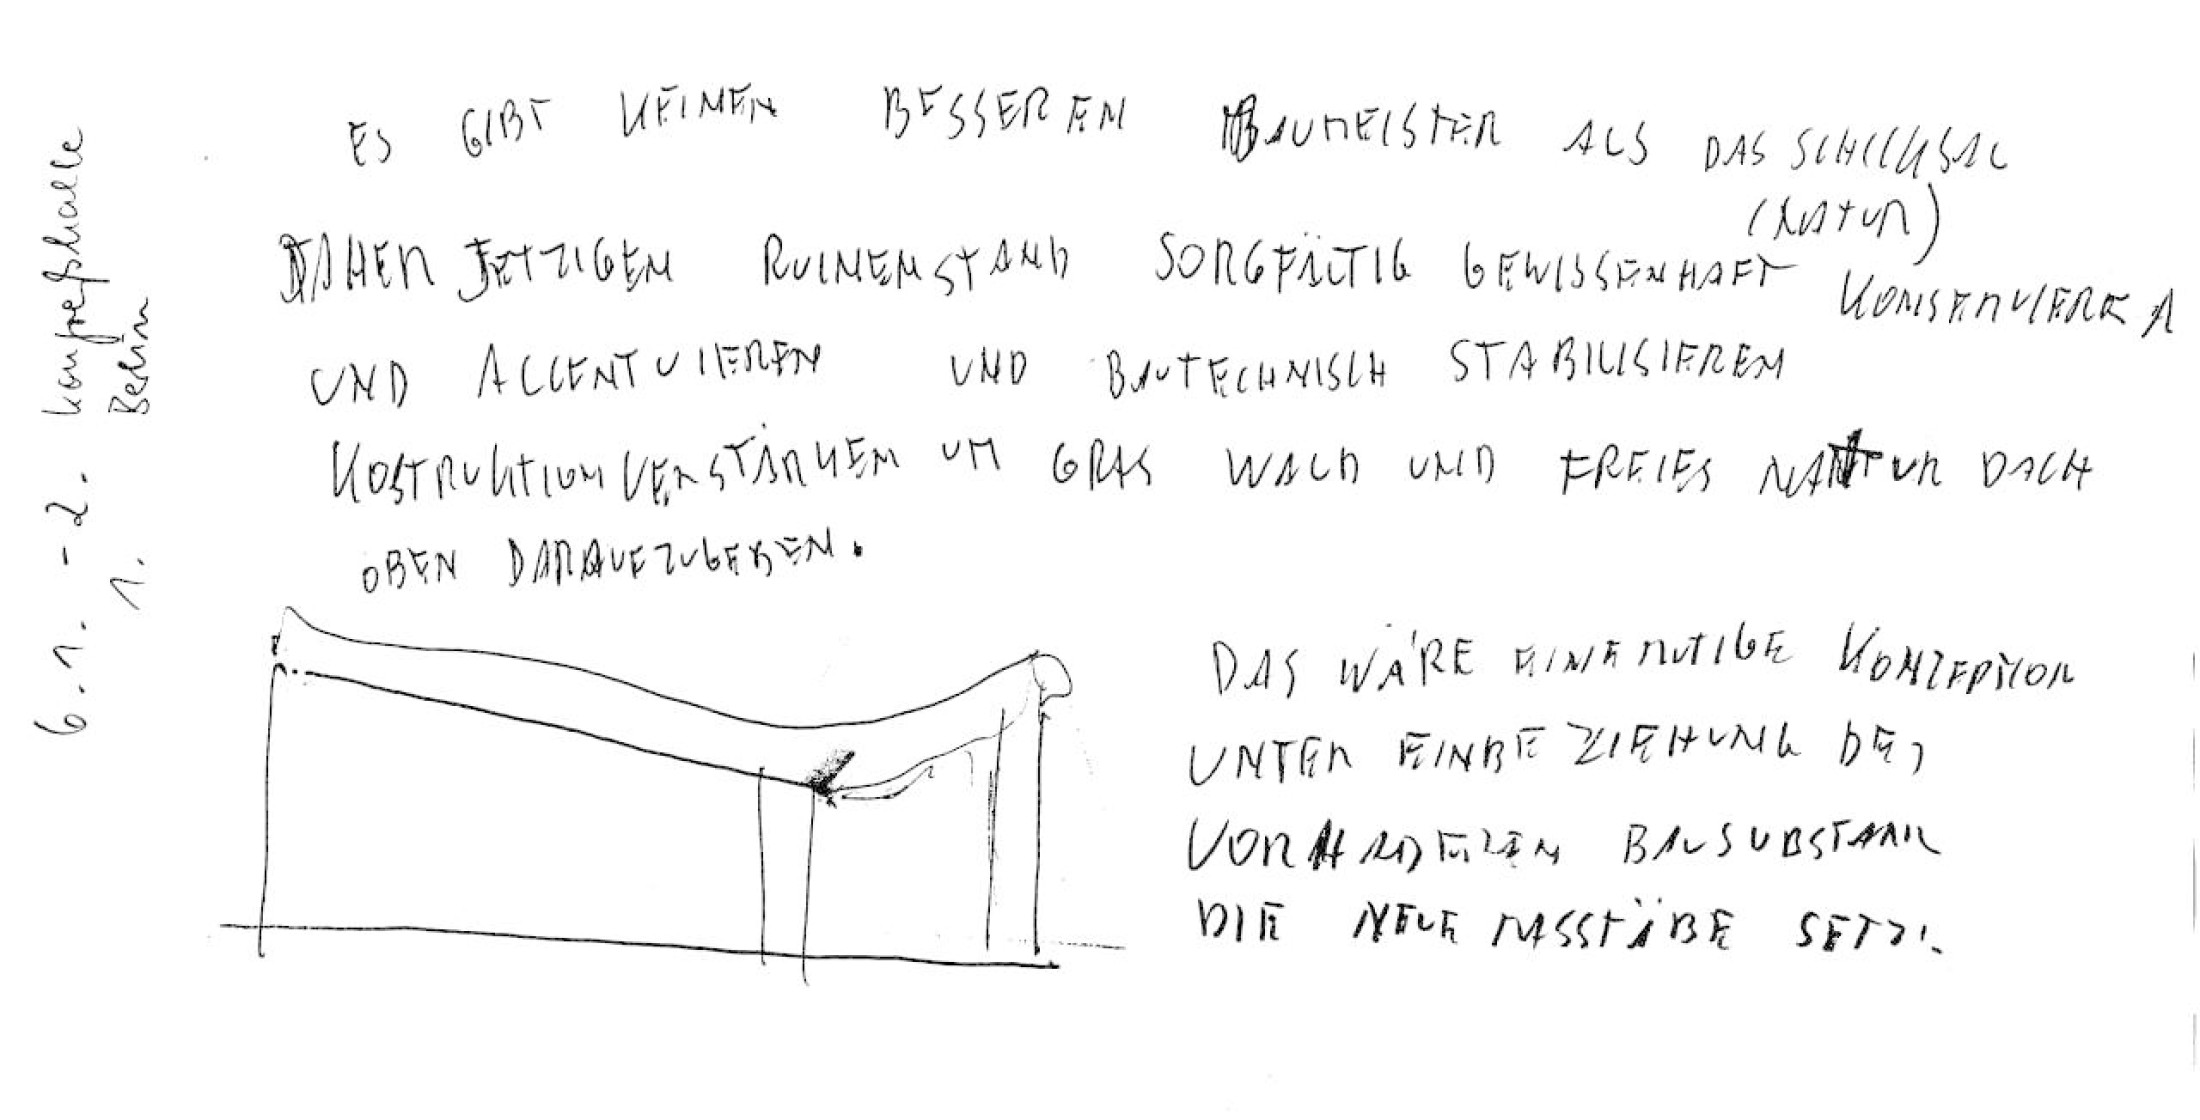 ES GIBT KEINEN BESSEREN BAUMEISTER ALS DAS SCHICKSAL
(NATUR)
DAHER JETZIGEN RUINENSTAND SORGFÄLTIG GEWISSENHAFT KONSERVIEREN
UND ACCENTUIEREN UND BAUTECHNISCH STABILISIEREN
KOSTRUKTION VERSTÄRKEN UM GRAS WALD UND FREIES NATUR DACH
OBEN DARAUFZUGEBEN.
DAS WÄRE EINE MUTIGE KONZEPTION
UNTER EINBEZIEHUNG DER
BAUSUBSTANZ
DIE NEUE MASSTÄBE SETZT.
6.1. -2. Kongreßhalle
1. Berlin